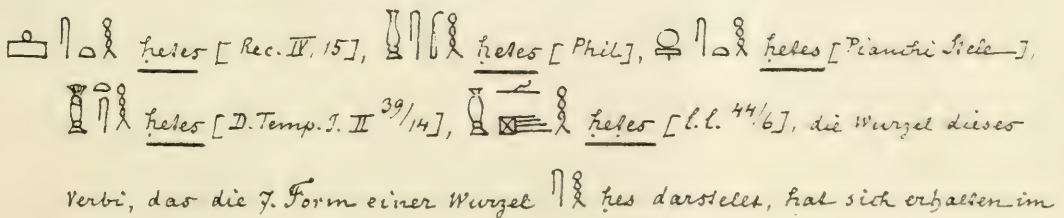 ḥetes [Rec. IV. 15], ḥetes [Phil], ḥetes [Pianchi Stele],
ḥetes [D. Temp. I. II 39/14], ḥetes [l.l. 44/6], die Wurzel dieses
Verbi, das die 7. Form einer Wurzel ḥes darstellt, hat sich erhalten im